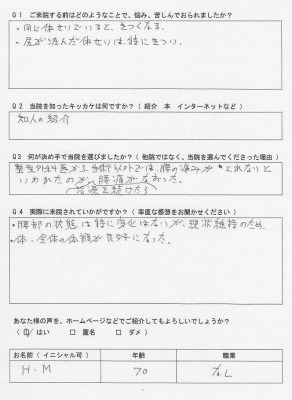 Q1 ご来院する前はどのようなことで、悩み、苦しんでおられましたか？
・同じ体せいでいると、きつくなる。
・尻が沈んだ体せいは、特にきつい。
Q2 当院を知ったキッカケは何ですか？（紹介 本 インターネットなど）
知人の紹介
Q3 何が決め手で当院を選びましたか？（他院ではなく、当院を選んでくださった理由）
整形外科医から、手術以外では、腰の痛みが とれないと
いわれたのが、腰痛がなおった。
Q4 実際に来院されていかがですか？（率直な感想をお聞かせください）
・腰部の状態は特に変化はないが、現状維持のため。
・体、全体の体調が良好になった。
あなた様の声を、ホームページなどでご紹介してもよろしいでしょうか？
はい □ 匿名 □ ダメ）
お名前（イニシャル可） 年齢 職業
H.M 70 なし